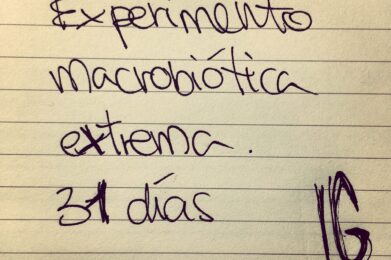 Experimento
macrobiótica
extrema.
31 días
IG